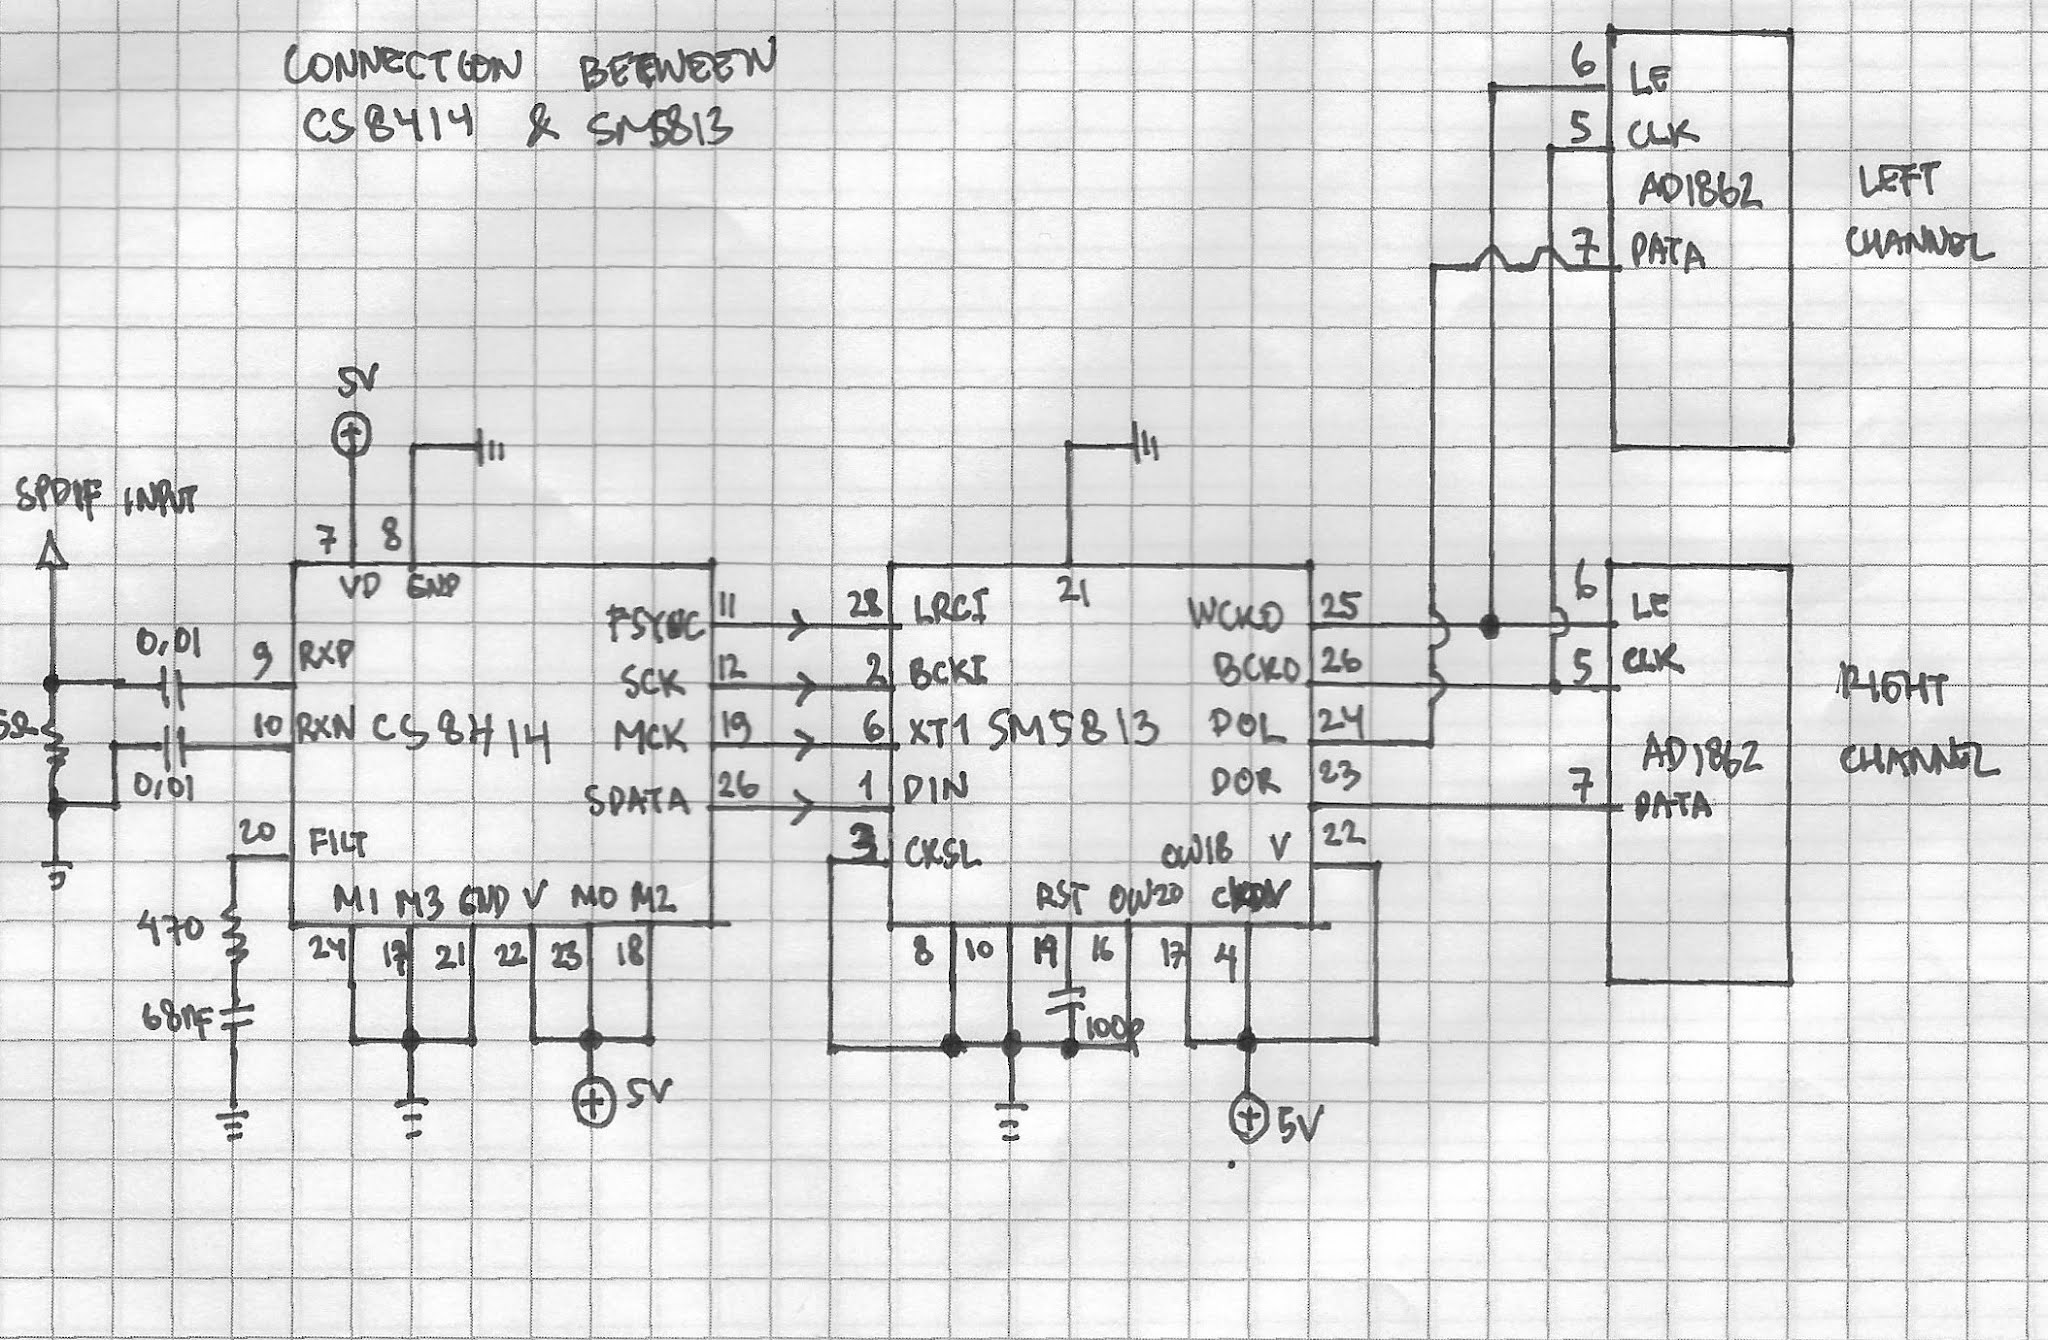 CONNECTION BETWEEN
CS8414 & SM5813
6 LE
5 CLK
AD1862
7 DATA
LEFT
CHANNEL
5V
SPDIF INPUT
7 8
VD GND
0,01
9 RXP
10 RXN CS8414
0,01
5Ω
20 FILT
470
68nF
FSYNC 11
SCK 12
MCK 19
SDATA 26
M1 M3 GND V M0 M2
24 17 21 22 23 18
5V
21
28 LRCI
2 BCKI
6 XT1 SM5813
1 DIN
3 CKSL
WCKO 25
BCKO 26
DOL 24
DOR 23
OW18 V 22
RST OW20 CKDV
8 10 19 16 17 4
100p
5V
6 LE
5 CLK
AD1862
7 DATA
RIGHT
CHANNEL